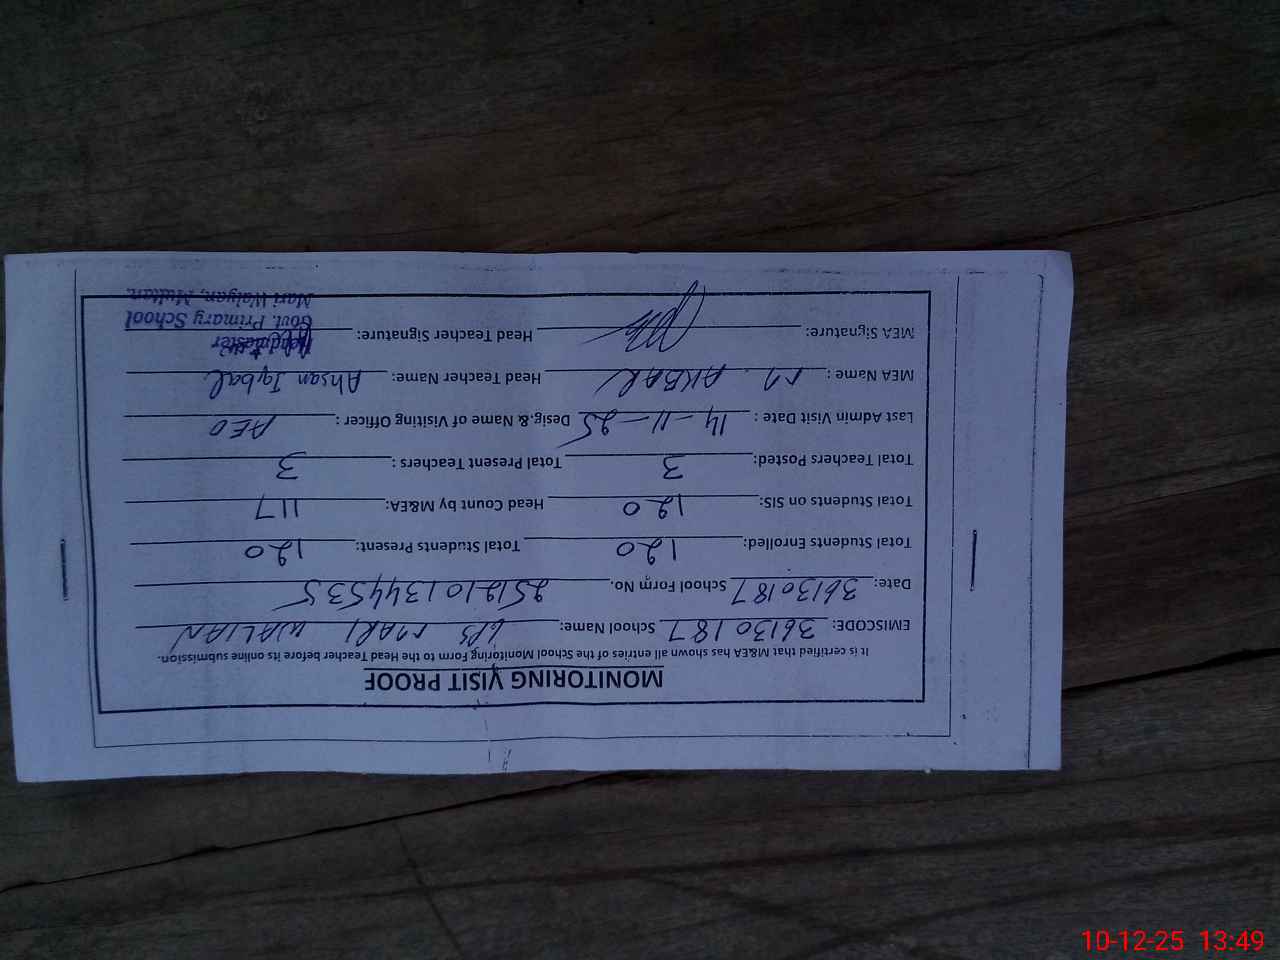 MONITORING VISIT PROOF
It is certified that M&EA has shown all entries of the School Monitoring Form to the Head Teacher before its online submission.
EMISCODE: 36130187 School Name: GPS MARI WALIAN
Date: 36130187 School Form No. 251210134453 5
Total Students Enrolled: 120 Total Students Present: 120
Total Students on SIS: 120 Head Count by M&EA: 117
Total Teachers Posted: 3 Total Present Teachers : 3
Last Admin Visit Date : 14-11-25 Desig.& Name of Visiting Officer : AEO
MEA Name : M. AKBAR Head Teacher Name: Ahsan Iqbal
MEA Signature: Head Teacher Signature:
Headmaster
Govt. Primary School
Mari Walyan, Multan.
10-12-25 13:49